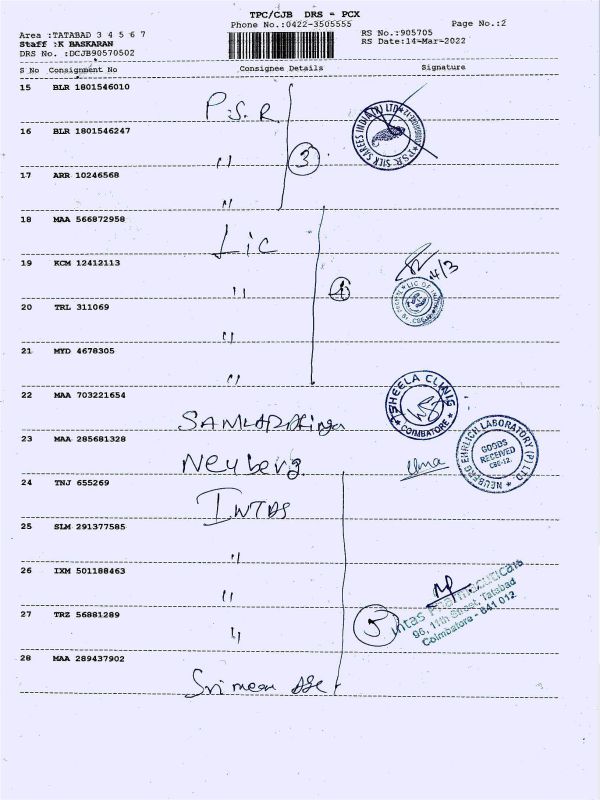 TPC/CJB DRS - PCX
Phone No.:0422-3505555
Page No.:2
Area :TATABAD 3 4 5 6 7
RS No.:905705
Staff :K BASKARAN
RS Date:14-Mar-2022
DRS No. :DCJB90570502
S No Consignment No Consignee Details Signature
15 BLR 1801546010
P.S.R
P.S.R. SILK SAREES INDIA (P) LTD
16 BLR 1801546247
"
3
17 ARR 10246568
"
18 MAA 566872958
Lic
19 KCM 12412113
"
4
4/3
LIC OF
20 TRL 311069
"
21 MYD 4678305
"
22 MAA 703221654
SHEELA CLINIC
COIMBATORE
23 MAA 285681328
Neuberg
Uma
NEUBERG EHRLICH LABORATORY (P) LTD
GOODS
RECEIVED
CBE-12.
24 TNJ 655269
INTAS
25 SLM 291377585
"
26 IXM 501188463
"
27 TRZ 56881289
"
5
Intas Pharmaceuticals
96, 11th Street, Tatabad
Coimbatore - 641 012
28 MAA 289437902